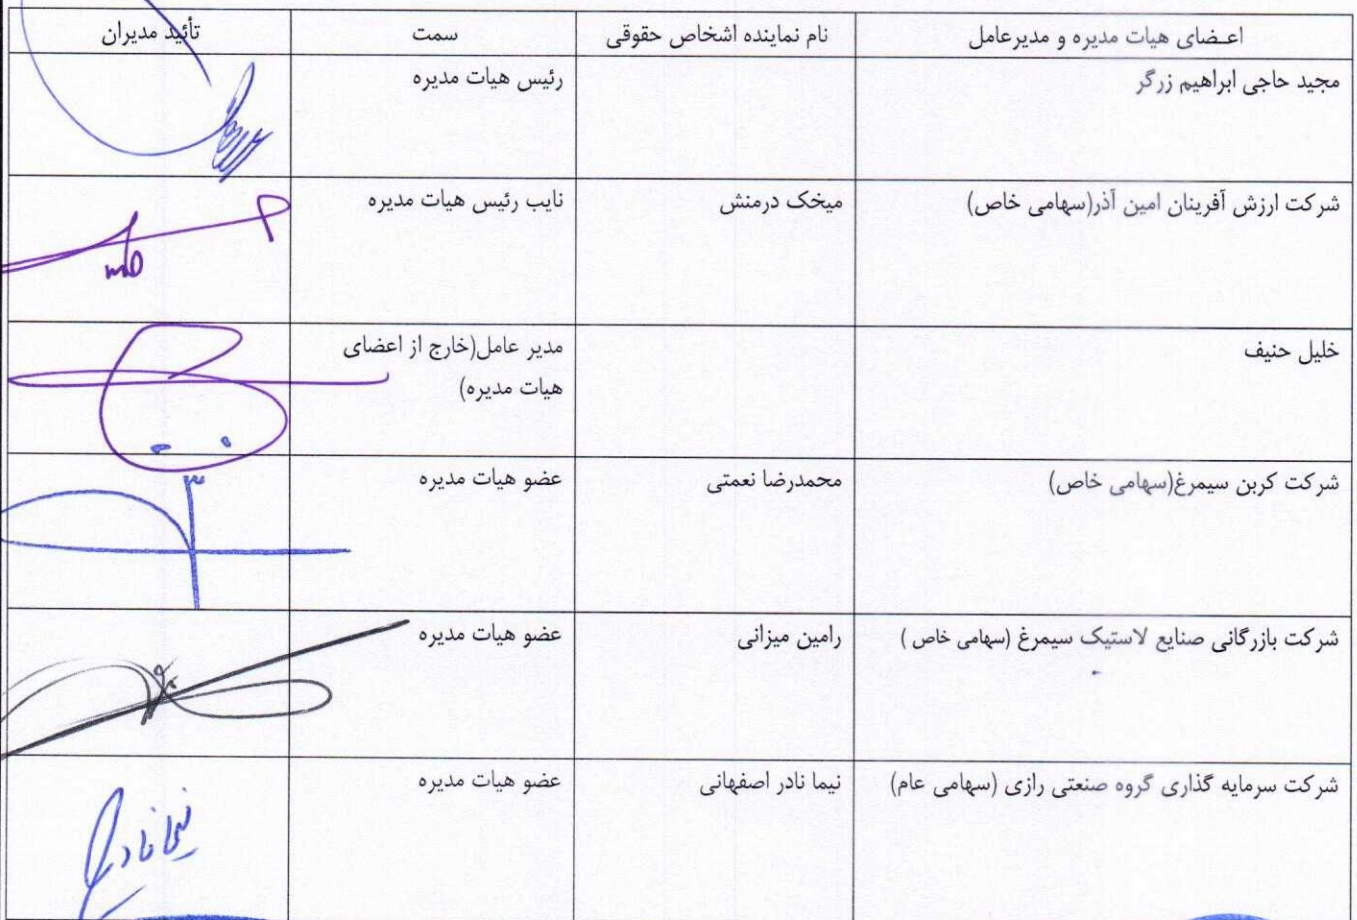 اعـضای هیات مدیره و مدیرعامل	نام نماینده اشخاص حقوقی	سمت	تأئید مدیران
مجید حاجی ابراهیم زرگر	رئیس هیات مدیره
شرکت ارزش آفرینان امین آذر(سهامی خاص)	میخک درمنش	نایب رئیس هیات مدیره
خلیل حنیف	مدیر عامل(خارج از اعضای
هیات مدیره)
شرکت کربن سیمرغ(سهامی خاص)	محمدرضا نعمتی	عضو هیات مدیره
شرکت بازرگانی صنایع لاستیک سیمرغ (سهامی خاص )	رامین میزانی	عضو هیات مدیره
شرکت سرمایه گذاری گروه صنعتی رازی (سهامی عام)	نیما نادر اصفهانی	عضو هیات مدیره